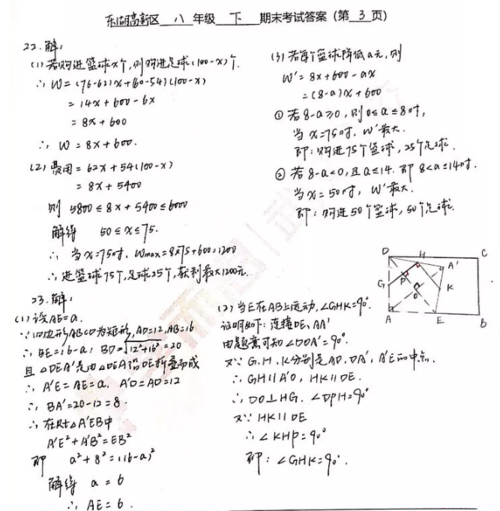 东湖高新区 八 年级 下 期末考试答案（第 3 页）
22.解：
(1)若购进篮球x个,则购进足球(100-x)个.
∴ W=(76-62)x+(60-54)(100-x)
=14x+600-6x
=8x+600
∴ W=8x+600.
(2)费用=62x+54(100-x)
=8x+5400
则 5800≤8x+5400≤6000
解得 50≤x≤75.
∴ 当x=75时, Wmax=8×75+600=1200
∴进篮球75个,足球25个,获利最大1200元.
(3)若每个篮球降低a元,则
W'=8x+600-ax
=(8-a)x+600
①若8-a≥0,则0≤a≤8时,
当x=75时,W'最大.
即:购进75个篮球,25个足球.
②若8-a<0,且a≤14.即8<a≤14时.
当x=50时, W'最大.
即:购进50个篮球,50个足球.
23.解：
(1)设AE=a.
∵四边形ABCD为矩形,AD=12,AB=16
∴ BE=16-a, BD=√12²+16²=20
且△DEA'是由△DEA沿DE折叠而成
∴ A'E=AE=a. A'D=AD=12
∴ BA'=20-12=8.
∴在Rt△A'EB中
A'E²+A'B²=EB²
即 a²+8²=(16-a)²
解得 a=6
∴ AE=6.
(2)当E在AB上运动,∠GHK=90°.
证明如下:连接DE,AA'
由题意可知∠DOA'=90°.
又∵G.H.K分别是AD.DA'.A'E的中点.
∴ GH∥A'O, HK∥DE.
∴ DO⊥HG. ∠DPH=90°
又∵HK∥DE
∴ ∠KHP=90°
即:∠GHK=90°.
D H C
A'
G P K
O
A E B